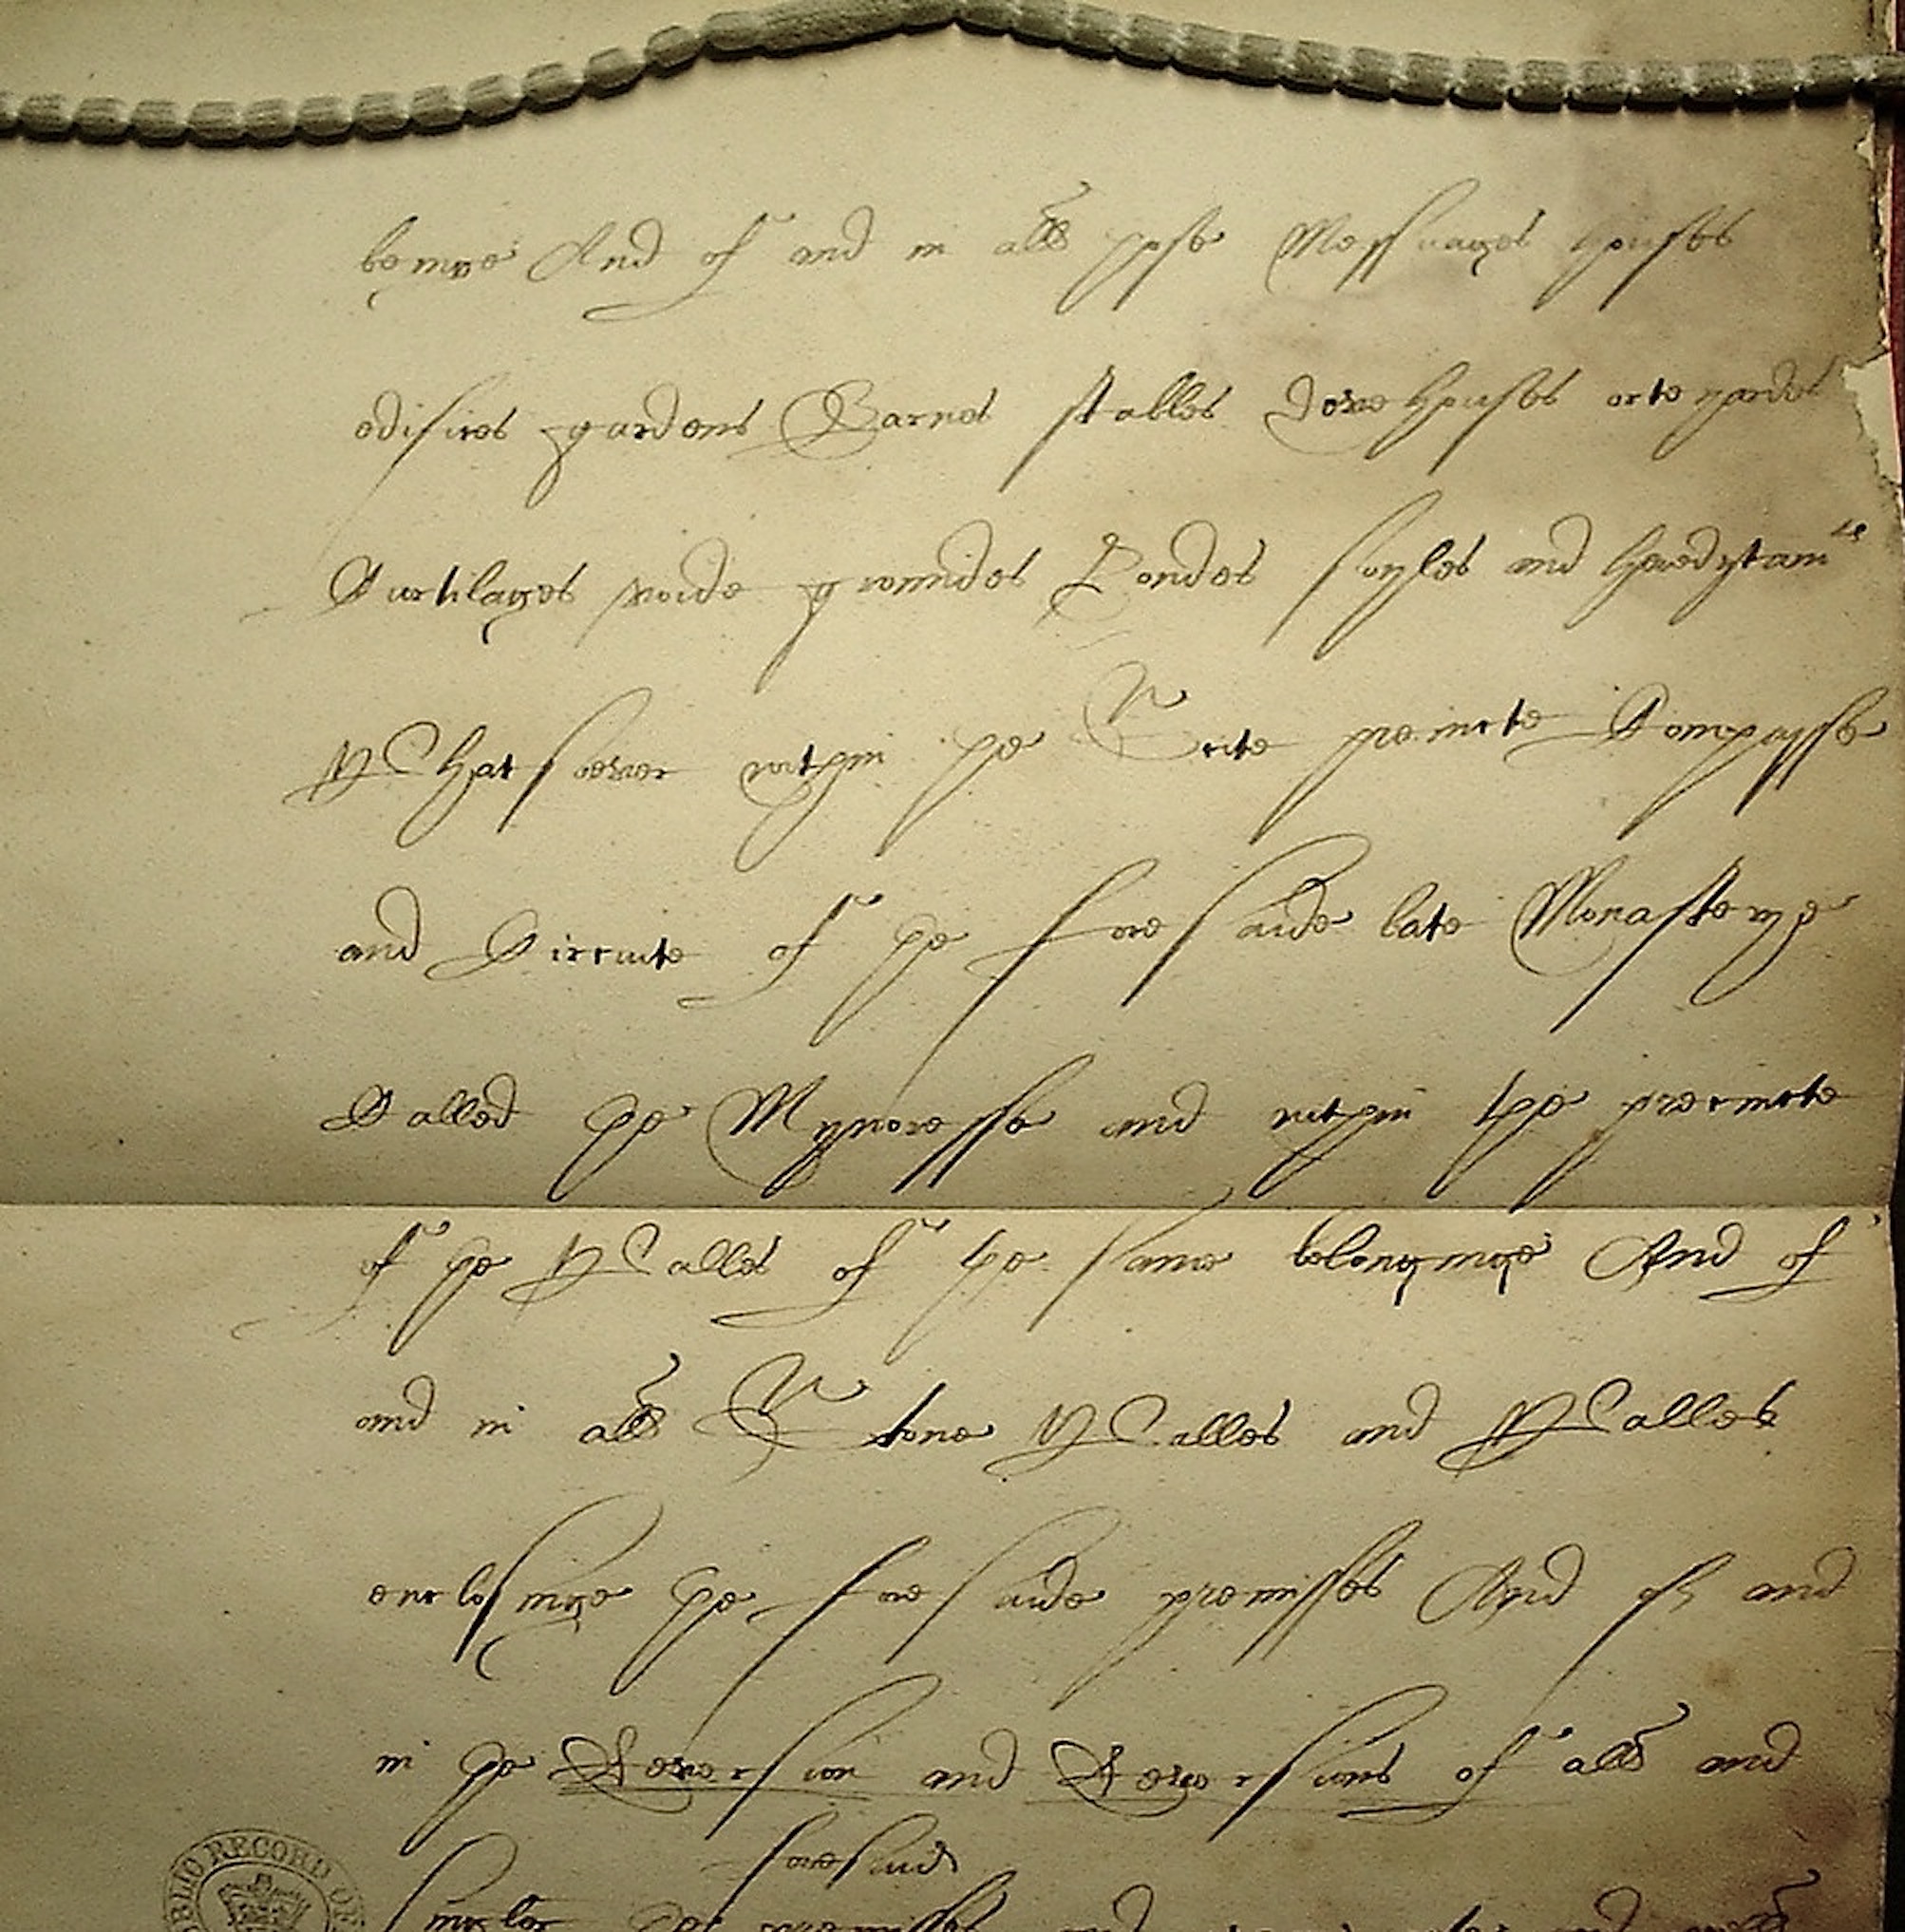 beinge And of and in all those Messuages houses
edifices gardens Barnes stables dovehouses orteyardes
Curtilages voide growndes Londes soyles and heredytam<sup>tes</sup>
Whatsoever within the Scite precincte Compasse
and Circuite of the foresaide late Monasterye
Called the Mynoresse and within the precincte
of the Walles of the same belonginge And of
and in all Stone Walles and Walles
enclosinge the foresaide premisses And of and
in the Reversion and Reversions of all and
foresaid
singler the premisses and
PUBLIC RECORD OF